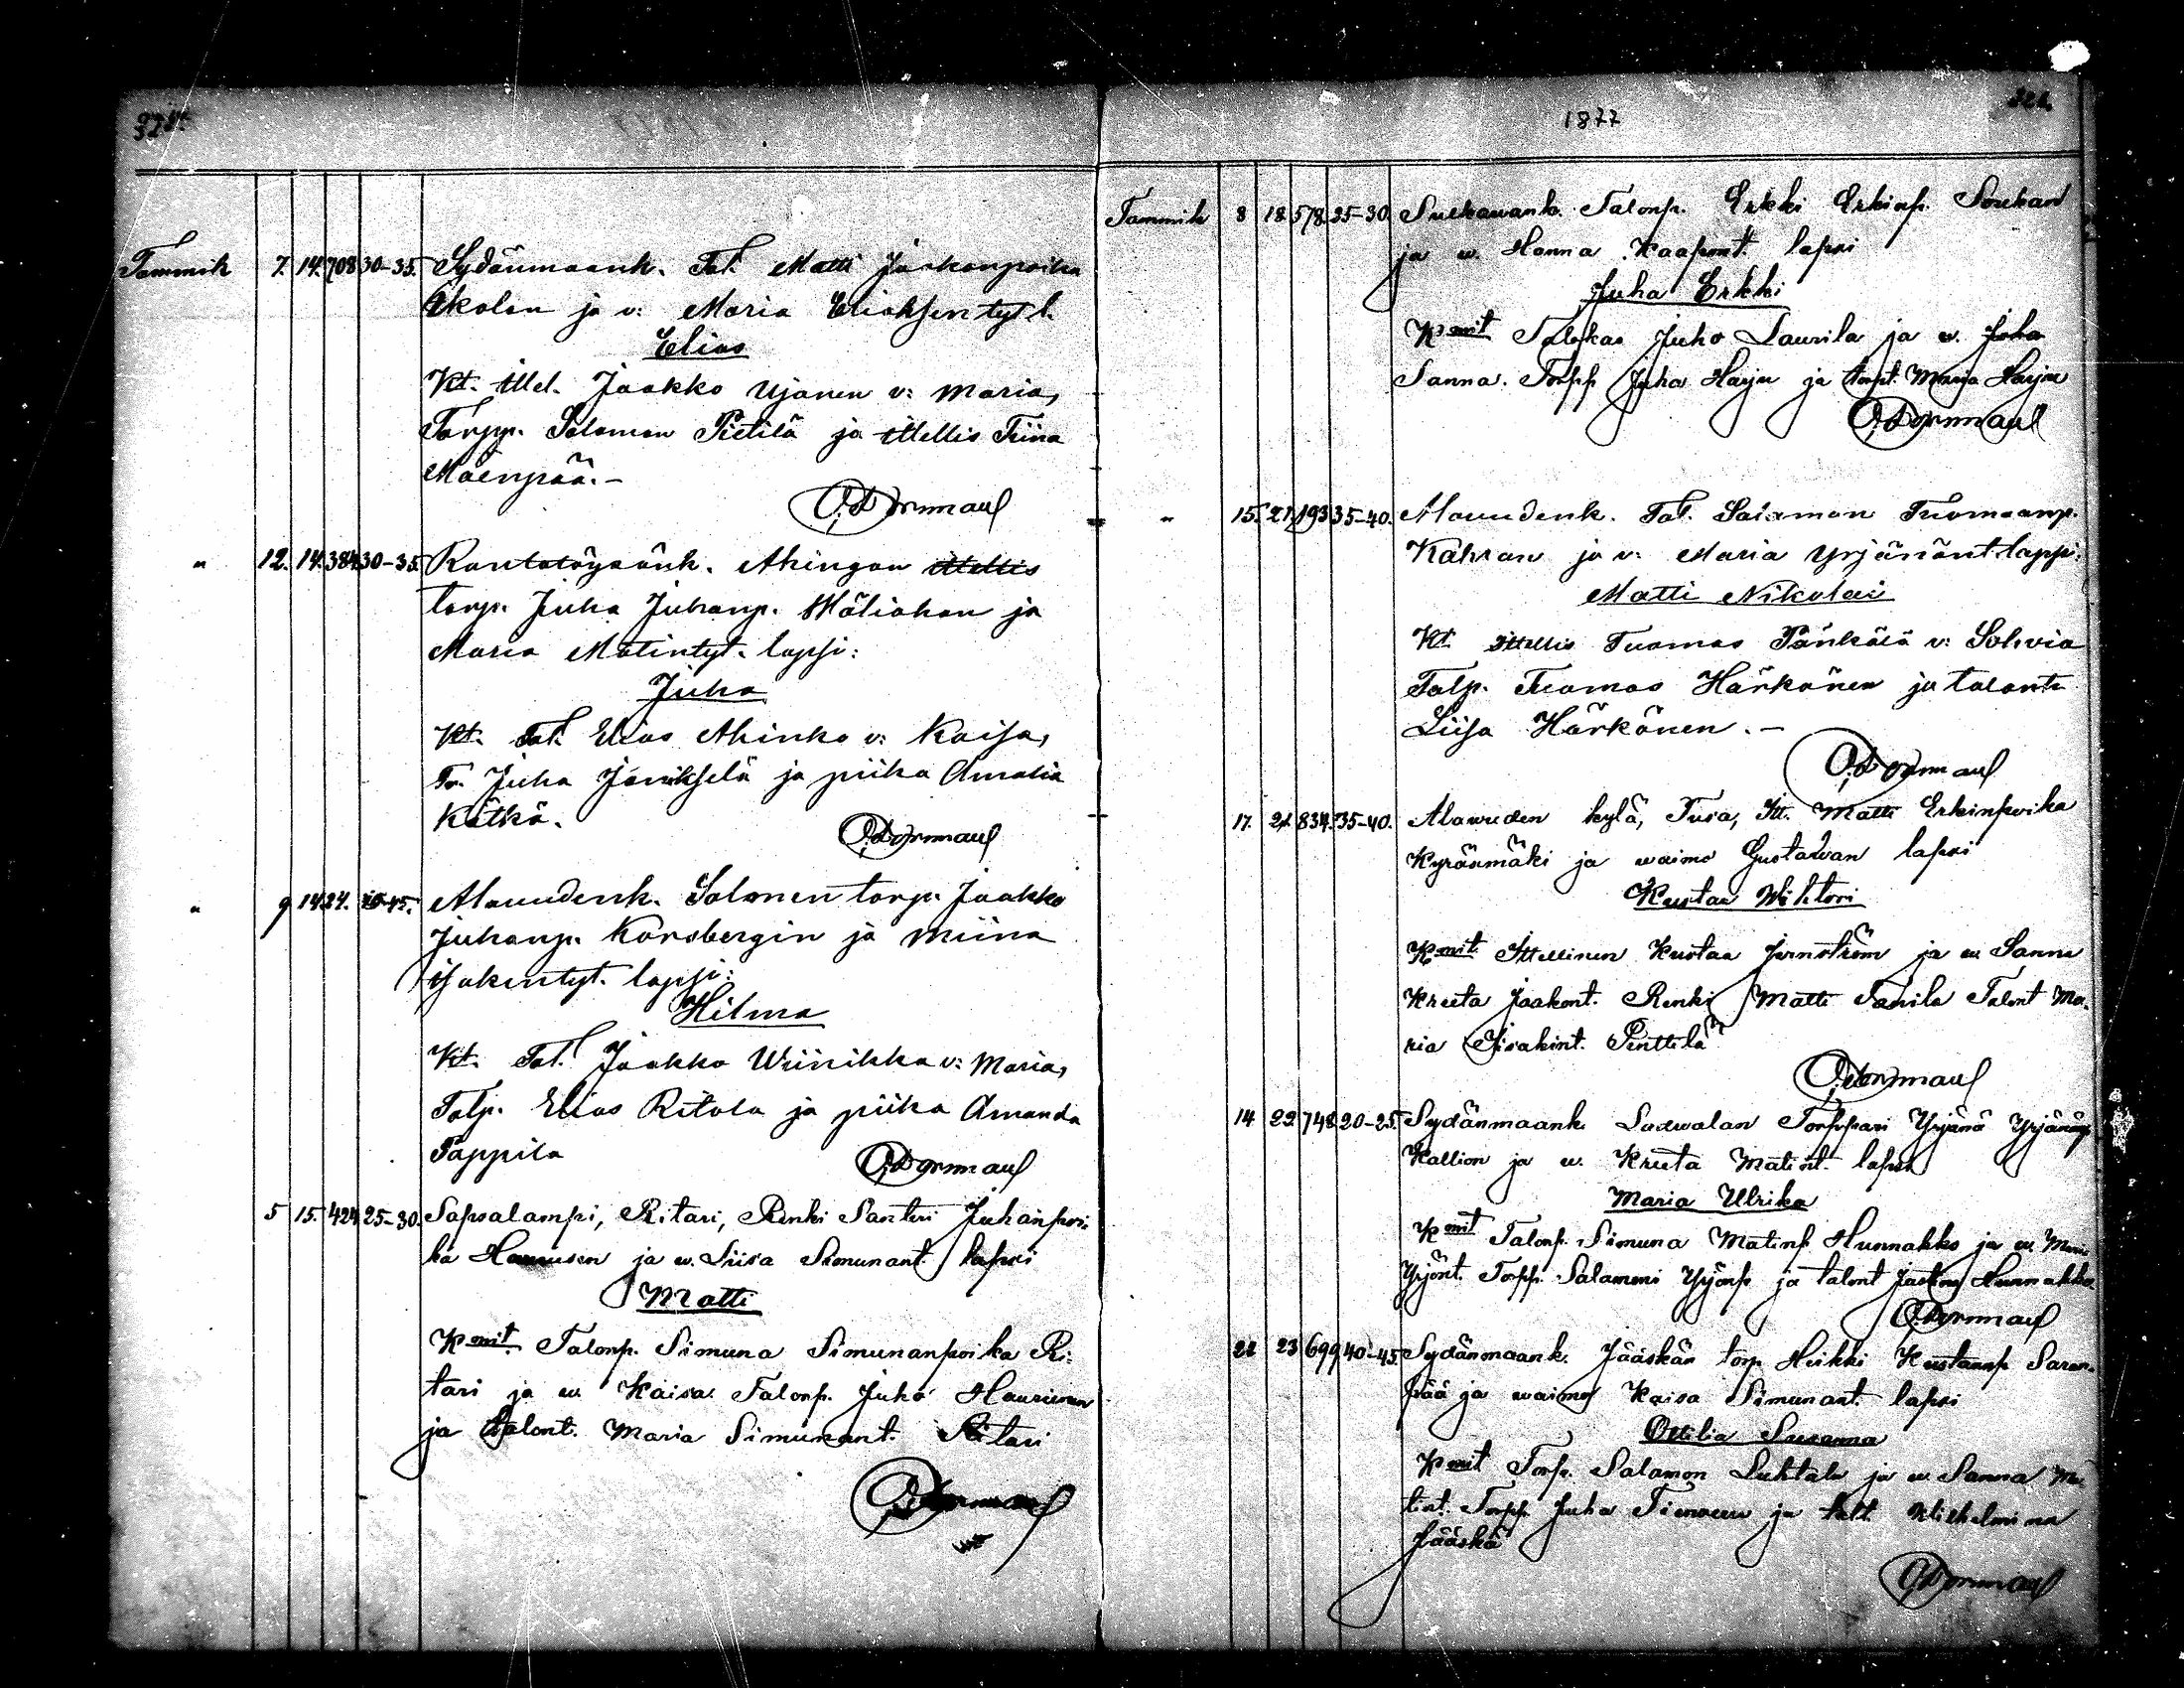 1877
Tammik 7. 14. 708 30-35. Sydänmaank. Tal. Matti Jaakonpoika
Akolan ja v: Maria Eliaksentyt l.
Elias
Kt. Ittel. Jaakko Ujanen v: Maria,
Torpp. Salomon Pietilä ja Ittellis Fiina
Mäenpää.-
" 12. 14. 384 30-35. Rantatöysänk. Ahingon Ittellis
torp. Juha Juhanp. Wäliahon ja
Maria Matintyt. lapsi:
Juha
Kt. Tal. Elias Ahinko v: Kaisa,
Tr. Juha ja piika Amalia
Kätkä.
" 9 14 24. 40-45. Alavudenk. Salonen torp. Jaakko
Juhanp. Korsbergin ja Miina
Isakintyt. lapsi:
Hilma
Kt. Tal. Jaakko Wiinikka v: Maria,
Talp. Elias Ritola ja piika Amanda
Pappila
5 15. 424 25-30. Sapsalampi, Ritari, Renki Santeri Juhanpoi-
ka ja w. Liisa Simunant. lapsi
Matti
Kmit. Talonp. Simuna Simunanpoika Ri-
tari ja w. Kaisa. Talonp. Juho Haurunen
ja talont. Maria Simunant. Ritari
Tammik 8 18 578 25-30 Sulkavank. Talonp. Erkki Erkinp. Soukan
ja w. Hanna Kaapont. lapsi
Juha Erkki
Kmit Juho Laurila ja w.
Sanna. Torpp Juha Harju ja torpt. Marja Harju
" 15. 21 193 35-40. Alavudenk. Tal. Salomon Tuomaanp.
Kähran ja v: Maria Yrjänänt lapsi:
Matti Nikolai
Kt Ittellis Tuomas Pänkälä v: Sohvia
Talp. Tuomas Härkönen ja talont
Liisa Härkönen.-
17. 21 834. 35-40. Alawuden kylä, Tusa, Itt. Matti Erkinpoika
Kyräsmäki ja waimo Gustawan lapsi
Kustaa Wihtori
Kmit Ittellinen Kustaa Jernström ja w. Sanna
Kreeta Jaakont. Renki Matti Tanila Talont Ma-
ria Iisakint. Penttilä
14 22 748 20-25. Sydänmaank. Torppari Yrjänä Yrjänänp
Kallion ja w. Kreeta Matint. lapsi
Maria Ulrika
Kmit Talonp. Simuna Matinp Hunnakko ja w. Maria
Yrjönt. Torpp. Salamoni Yrjönp ja talont Hunnakko
22 23 699 40-45. Sydänmaank. Jääskän torp. Heikki Kustaanp Saren-
pää ja waimo Kaisa Simunant. lapsi
Ottilia Susanna
Kmit Torp. Salamon Luhtala ja w. Sanna Ma-
tint. Torpp. Juha ja talt. Wilhelmina
Jääskä